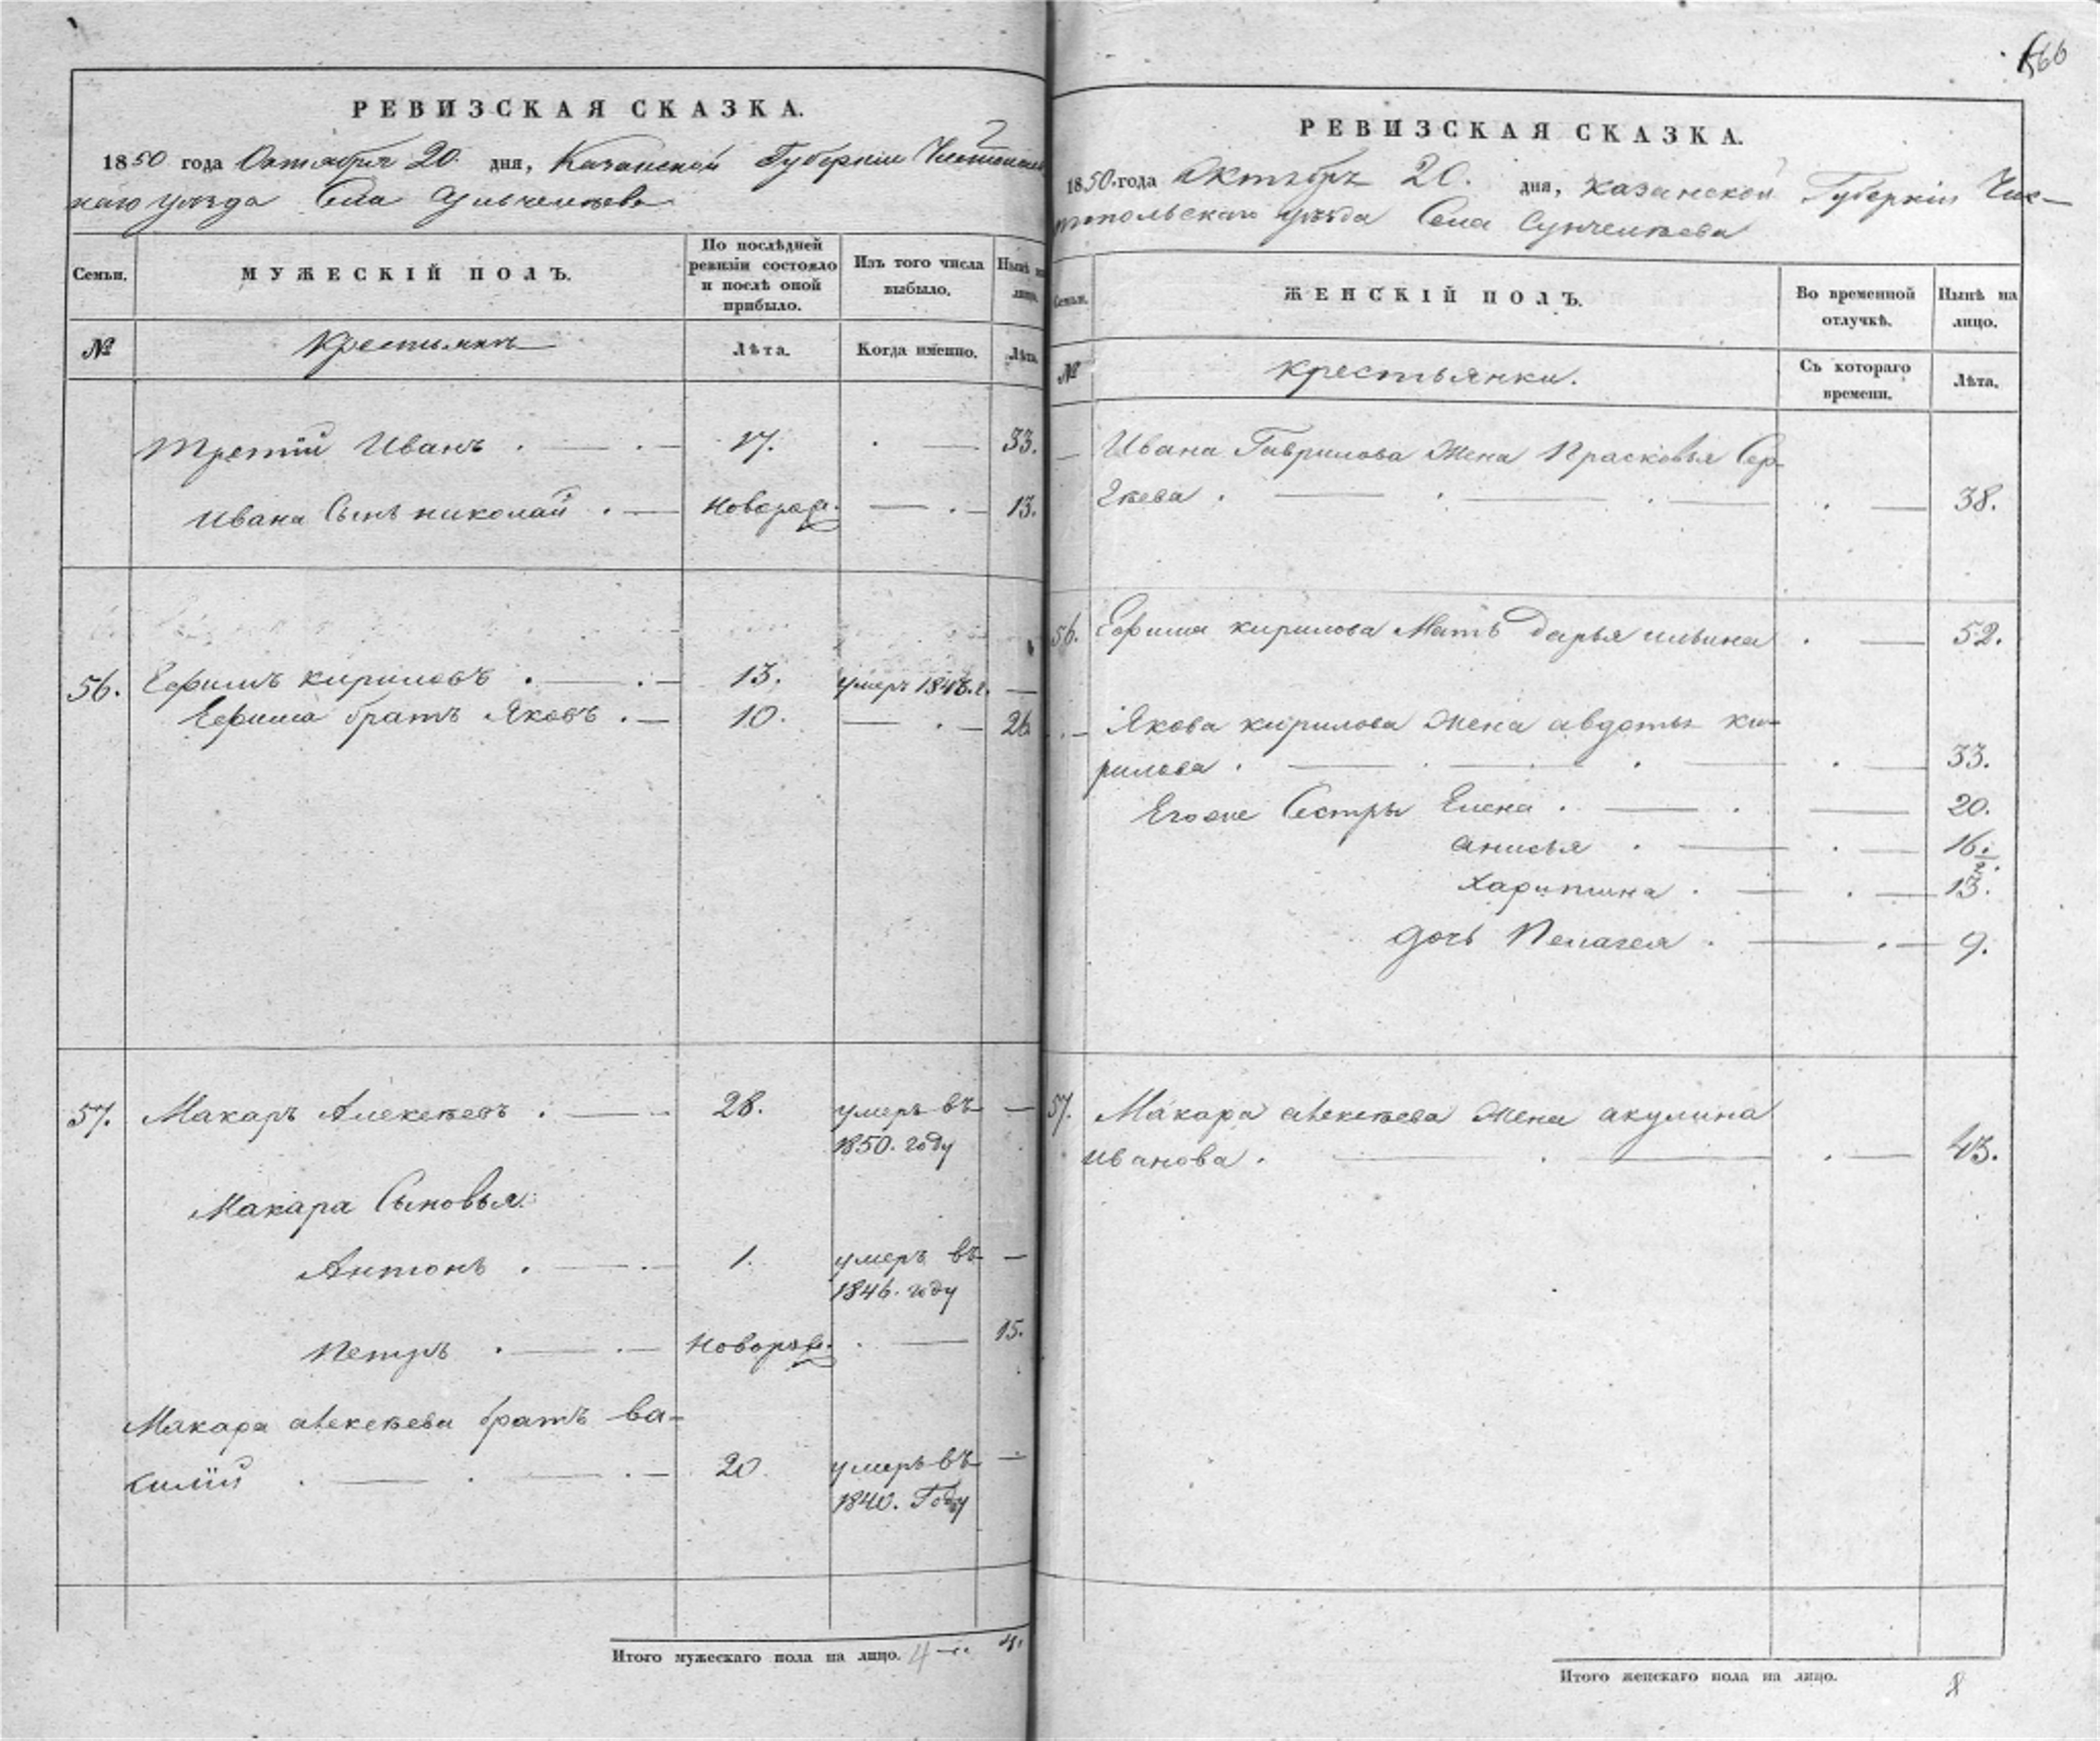 РЕВИЗСКАЯ СКАЗКА.
1850 года Октября 20. дня, Казанской Губернiи Чистополь
скаго уѣзда Села
Семьи.
МУЖЕСКIЙ ПОЛЪ.
По послѣдней
ревизiи состояло
и послѣ оной
прибыло.
Изъ того числа
выбыло.
Нынѣ на
лицо.
№
Крестьянъ
Лѣта.
Когда именно.
Лѣта.
Третiй Иванъ . — . — 17. . — 33.
Ивана Сынъ николай . — новорож. — . — 13.
56. Ефимъ кириловъ . — . — 13. умеръ 1848.г. —
Ефима братъ Яковъ . — 10. — . — 26
57. Макаръ Алексѣевъ . — . 28. умеръ въ —
1850. году
Макара Сыновья:
Антонъ . — . 1. умеръ въ —
1846. году
Петръ . — . — новорож. . — 15.
Макара алексѣева братъ ва-
силiй . — . — . — 20. умеръ въ —
1840. Году
Итого мужескаго пола на лицо. 4 4.
566
РЕВИЗСКАЯ СКАЗКА.
1850. года Октябрь 20. дня, Казанской Губернiи Чис-
топольскаго уѣзда Села Сунчелѣева
Семьи.
ЖЕНСКIЙ ПОЛЪ.
Во временной
отлучкѣ.
Нынѣ на
лицо.
№
крестьянки.
Съ котораго
времени.
Лѣта.
— Ивана Гаврилова Жена Прасковья Сер-
гѣева . — . — . — . — 38.
56. Ефима кирилова Мать Дарья ильина . — 52.
. — Якова кирилова жена авдотья ки-
рилова . — . — . — . — 33.
Егоже Сестры Елена . — . — 20.
анисья . — . — 16.
харитина . — . — 13.
дочь Пелагея . — . — 9.
57. Макара алексѣева жена акулина
иванова . — . — . — 43.
Итого женскаго пола на лицо. 8